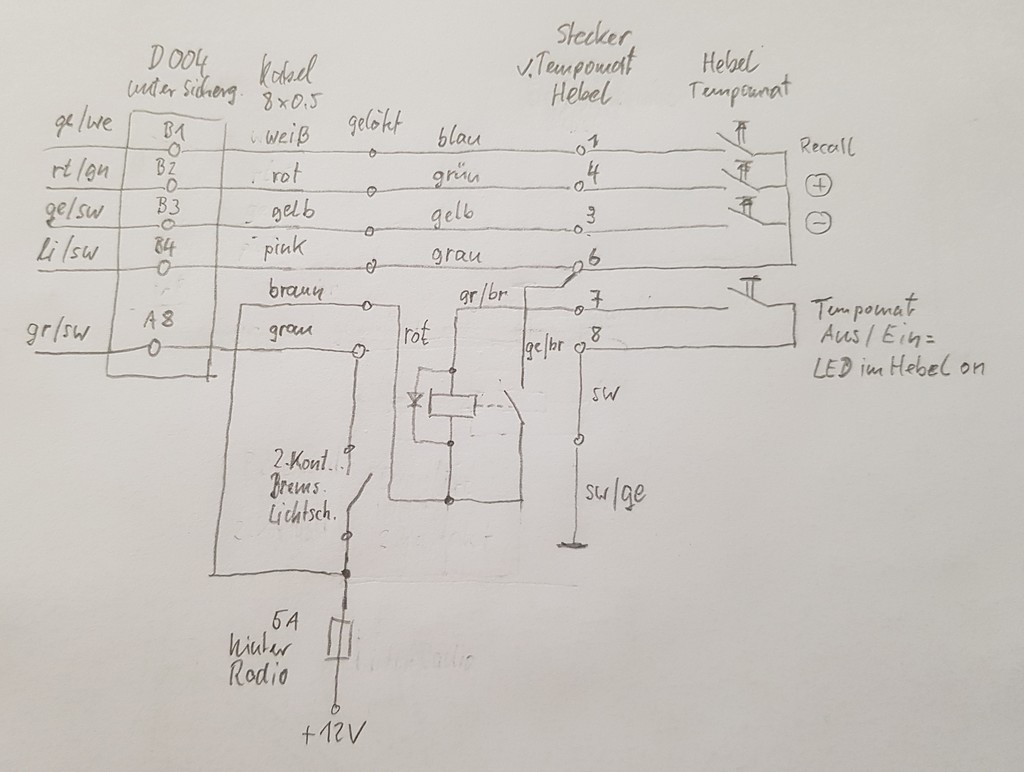 D004
unter Sicherg.
Kabel
8x0.5
Stecker
v. Tempomat
Hebel
Hebel
Tempomat
ge/we
B1
weiß
gelötet
blau
1
Recall
rt/gn
B2
rot
grün
4
+
ge/sw
B3
gelb
gelb
3
-
li/sw
B4
pink
grau
6
braun
gr/br
7
Tempomat
Aus/Ein=
LED im Hebel on
gr/sw
A8
grau
rot
ge/br
8
sw
2. Kont.
Brems.
Lichtsch.
sw/ge
5A
hinter
Radio
+12V